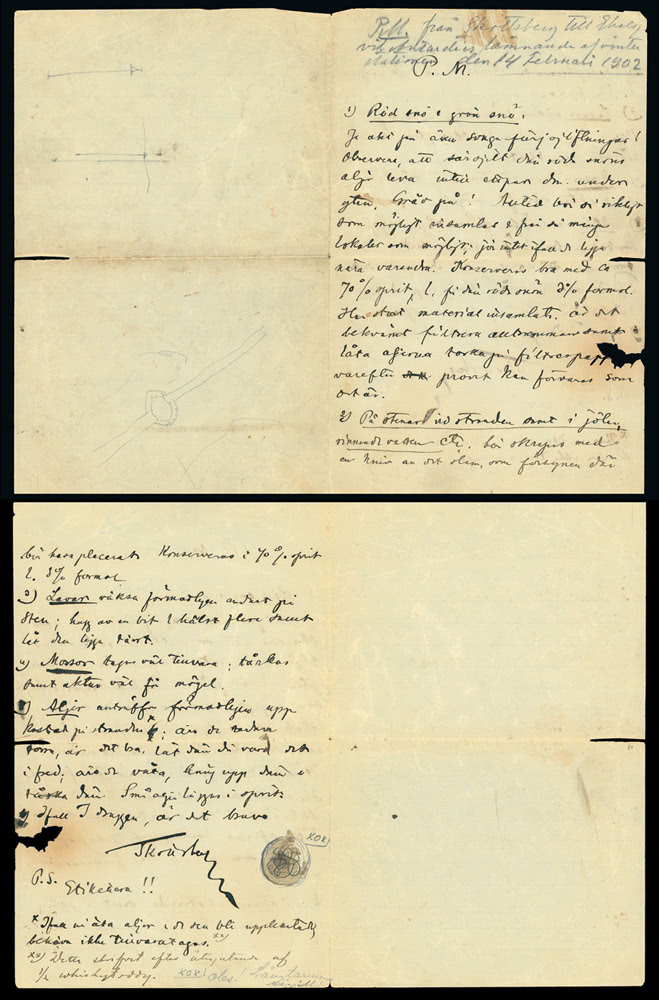 P.M. från Skottsberg till Ekelöf
vid Antarctics lämnande af vinter
stationen den 14 Februari 1902
P. M.
1) Röd snö & grön snö.
Ge akt på äfven svaga färgskiftningar!
Observera, att särskilt den röda snöns
alger leva intill etpar dm. under
ytan. Gräv på! Alltid bör så rikligt
som möjligt insamlas & från så många
lokaler som möjligt, även ifall de ligga
nära varandra. Konserveras bra med ca
70 % sprit, l. för den röda snön 3% formol.
Har stort material insamlats, är det
bekvämt filtrera alltsammans samt
låta algerna torka på filtrerpapp
varefter provet kan förvaras som
det är.
2) På stenar vid stranden samt i
rinnande vatten etc. bör skrapas med
en kniv av det slem, som försynen där
bör hava placerat. Konserveras i 70 % sprit
l. 3% formol
3) Lavar växa förmodligen endast på
Sten; hugg av en bit l. hälst flera samt
låt den ligga torrt.
4) Mossor tagas väl tillvara; torkas
samt aktas väl för mögel.
5) Alger anträffas förmodligen upp
kastade på stranden; äro de redan
torra, är det bra. Låt dem då vara det
i fred; äro de våta, häng upp dem &
torka dem. Små alger läggas i sprit.
Ifall I draggen, är det bravo
Skottsberg
xox)
P.S. Etikettera !!
x Ifall ni äta alger & de bli uppkastade,
behöva ikke tillvaratagas. xx)
xx) Detta skrifvet efter intagande af
1/2 whiskytoddy. xox) obs!